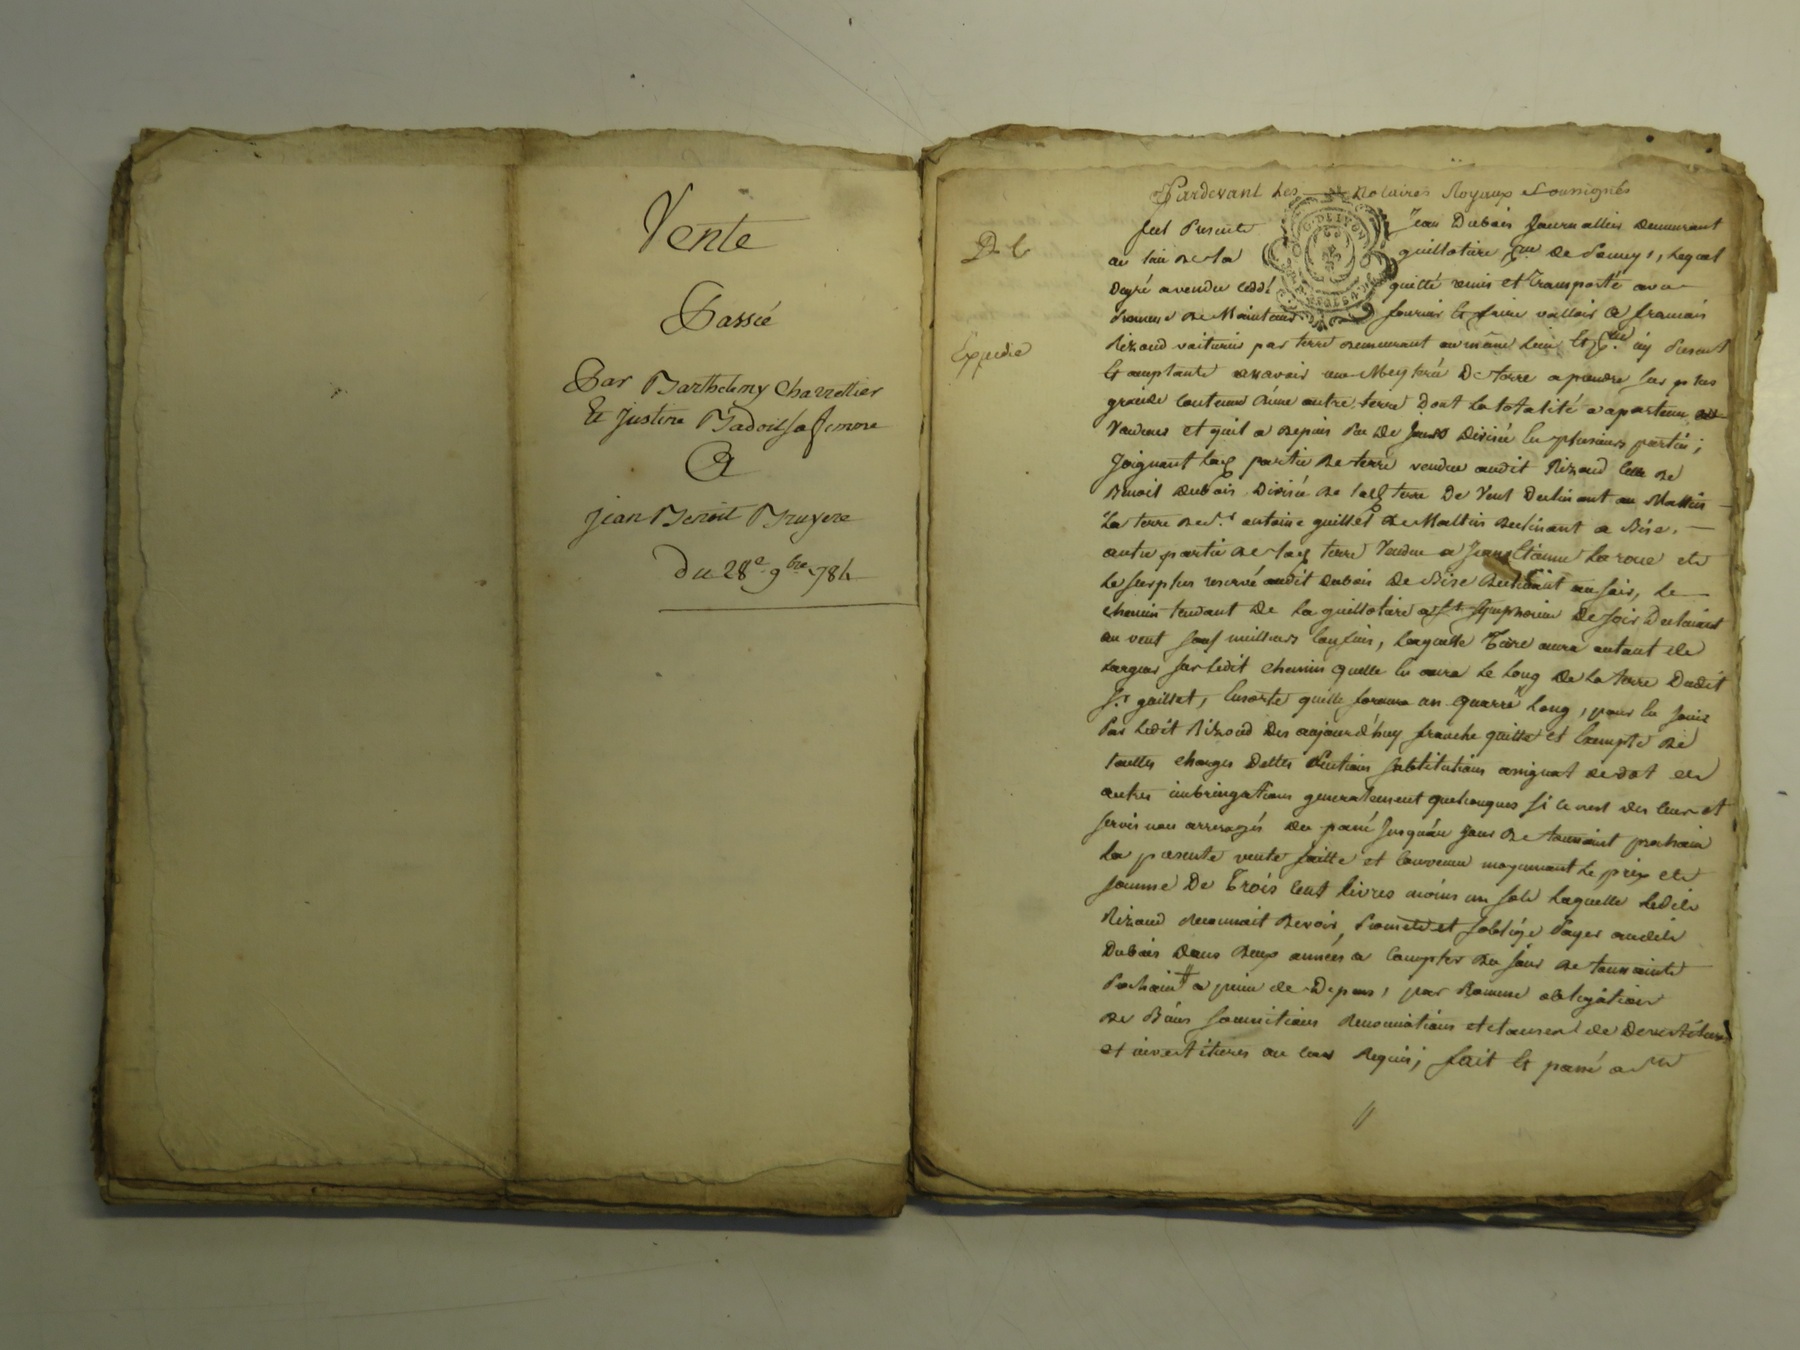 Vente
Passée
Par Barthelemy Chavallier
Et Justine Badoil sa femme
A
Jean Benoit Bruyere
Du 28e 9bre 784
Pardevant Les Notaires Royaux Soussignés
fut Present Jean Dubois Journallier demeurant
au lieu de la guillotiere, lequel
Degré a vendu ceddé quitté remis et Transporté avec
Promesse de Maintenir fournir et faire valloir a françois
Rizoud voiturier par terre demeurant au même lieu et ici Present
Et acceptant de terre a prendre sur plus
grande contenue d'une autre terre Dont La totalité a apartenu au
Vendeur et quil a Depuis Peu De Jours Divisé en plusieurs parties;
Joignant lad partie de terre vendue audit Rizoud celle de
Benoit Dubois Divisée de lad terre De Vent Declinant au Mattin
La terre de Sr antoine guillet de Mattin declinant a Bise.
autre partie de lad terre Vendue a Jean Etienne Laroue et
Le surplus reservé audit Dubois De Bise Declinant au soir, Le
chemin tendant De La guillotiere a St Symphorien De soir Declinant
au vent sauf meilleurs confins, Laquelle Terre aura autant de
Largeur sur Ledit chemin quelle en aura Le Long De La terre Dudit
Sr guillet, Ensorte quelle formera un quarré Long, pour en Jouir
Par Ledit Rizoud Des aujourdhuy franche quitte et Exempte De
touttes charges Dettes Pentions substitutions assignat de dot et
autres imbringations generalement quelconques si ce nest des cens et
servis non arreragés du passé Jusquau Jour De toussaint prochain
La presente vente faitte et convenue moyennant Le prix et
somme De Trois cent livres moins un sols Laquelle Ledit
Rizoud reconnait Devoir, Promet et s'oblige Payer audit
Dubois Dans Deux années a Compter Du Jour De toussaint
Prochain a peine de Depens, par Comme obligation
De Biens soumissions Renonciations et clauses de Devestitures
et investitures au cas Requis; fait Et passé a
D. C
Expedié